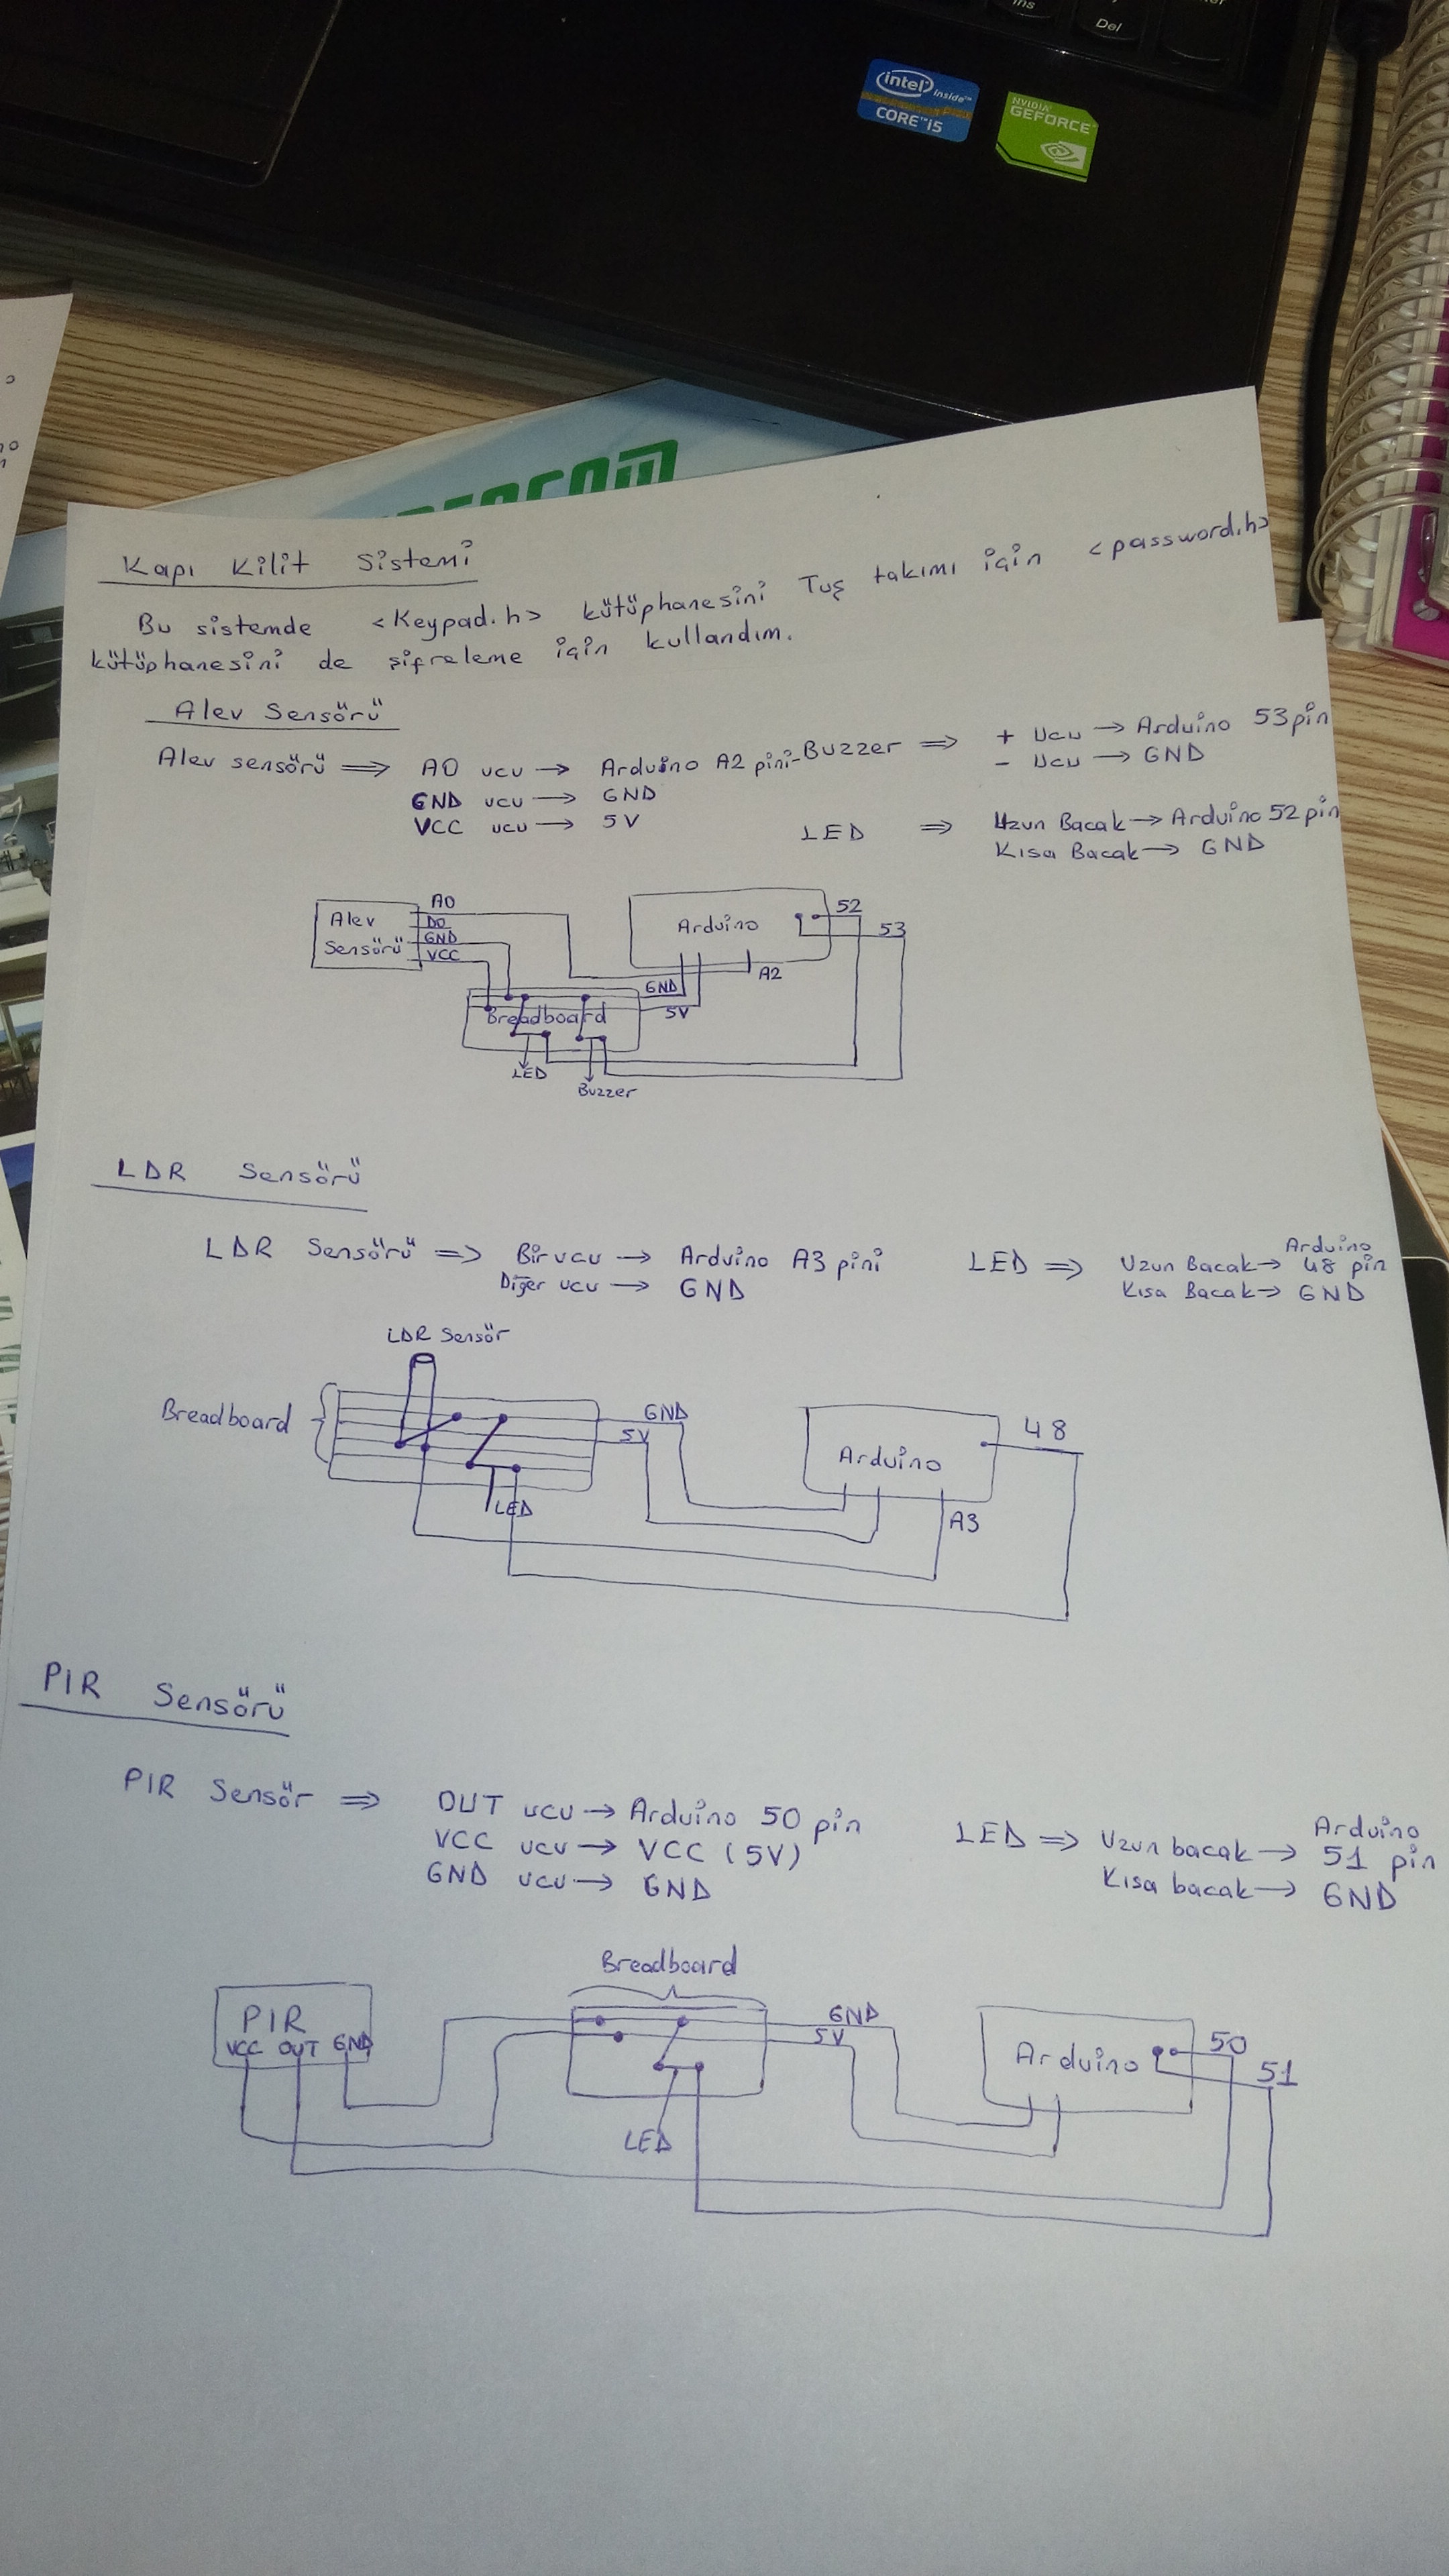 Ins
Del
intel inside™
CORE™ i5
NVIDIA
GEFORCE
Kapı Kilit Sistemi
Bu sistemde <Keypad.h> kütüphanesini Tuş takımı için <password.h>
kütüphanesini de şifreleme için kullandım.
Alev Sensörü
Alev sensörü ⇒ A0 ucu → Arduino A2 pini - Buzzer ⇒ + Ucu → Arduino 53 pin
- Ucu → GND
GND ucu → GND
VCC ucu → 5V
LED ⇒ Uzun Bacak → Arduino 52 pin
Kısa Bacak → GND
Alev Sensörü
A0
D0
GND
VCC
Arduino
52
53
A2
GND
5V
Breadboard
LED
Buzzer
LDR Sensörü
LDR Sensörü ⇒ Bir ucu → Arduino A3 pini
Diğer ucu → GND
LED ⇒ Uzun Bacak → Arduino 48 pin
Kısa Bacak → GND
LDR Sensör
Breadboard
GND
5V
Arduino
48
A3
LED
PIR Sensörü
PIR Sensör ⇒ OUT ucu → Arduino 50 pin
VCC ucu → VCC (5V)
GND ucu → GND
LED ⇒ Uzun bacak → Arduino 51 pin
Kısa bacak → GND
Breadboard
PIR
VCC OUT GND
GND
5V
Arduino
50
51
LED